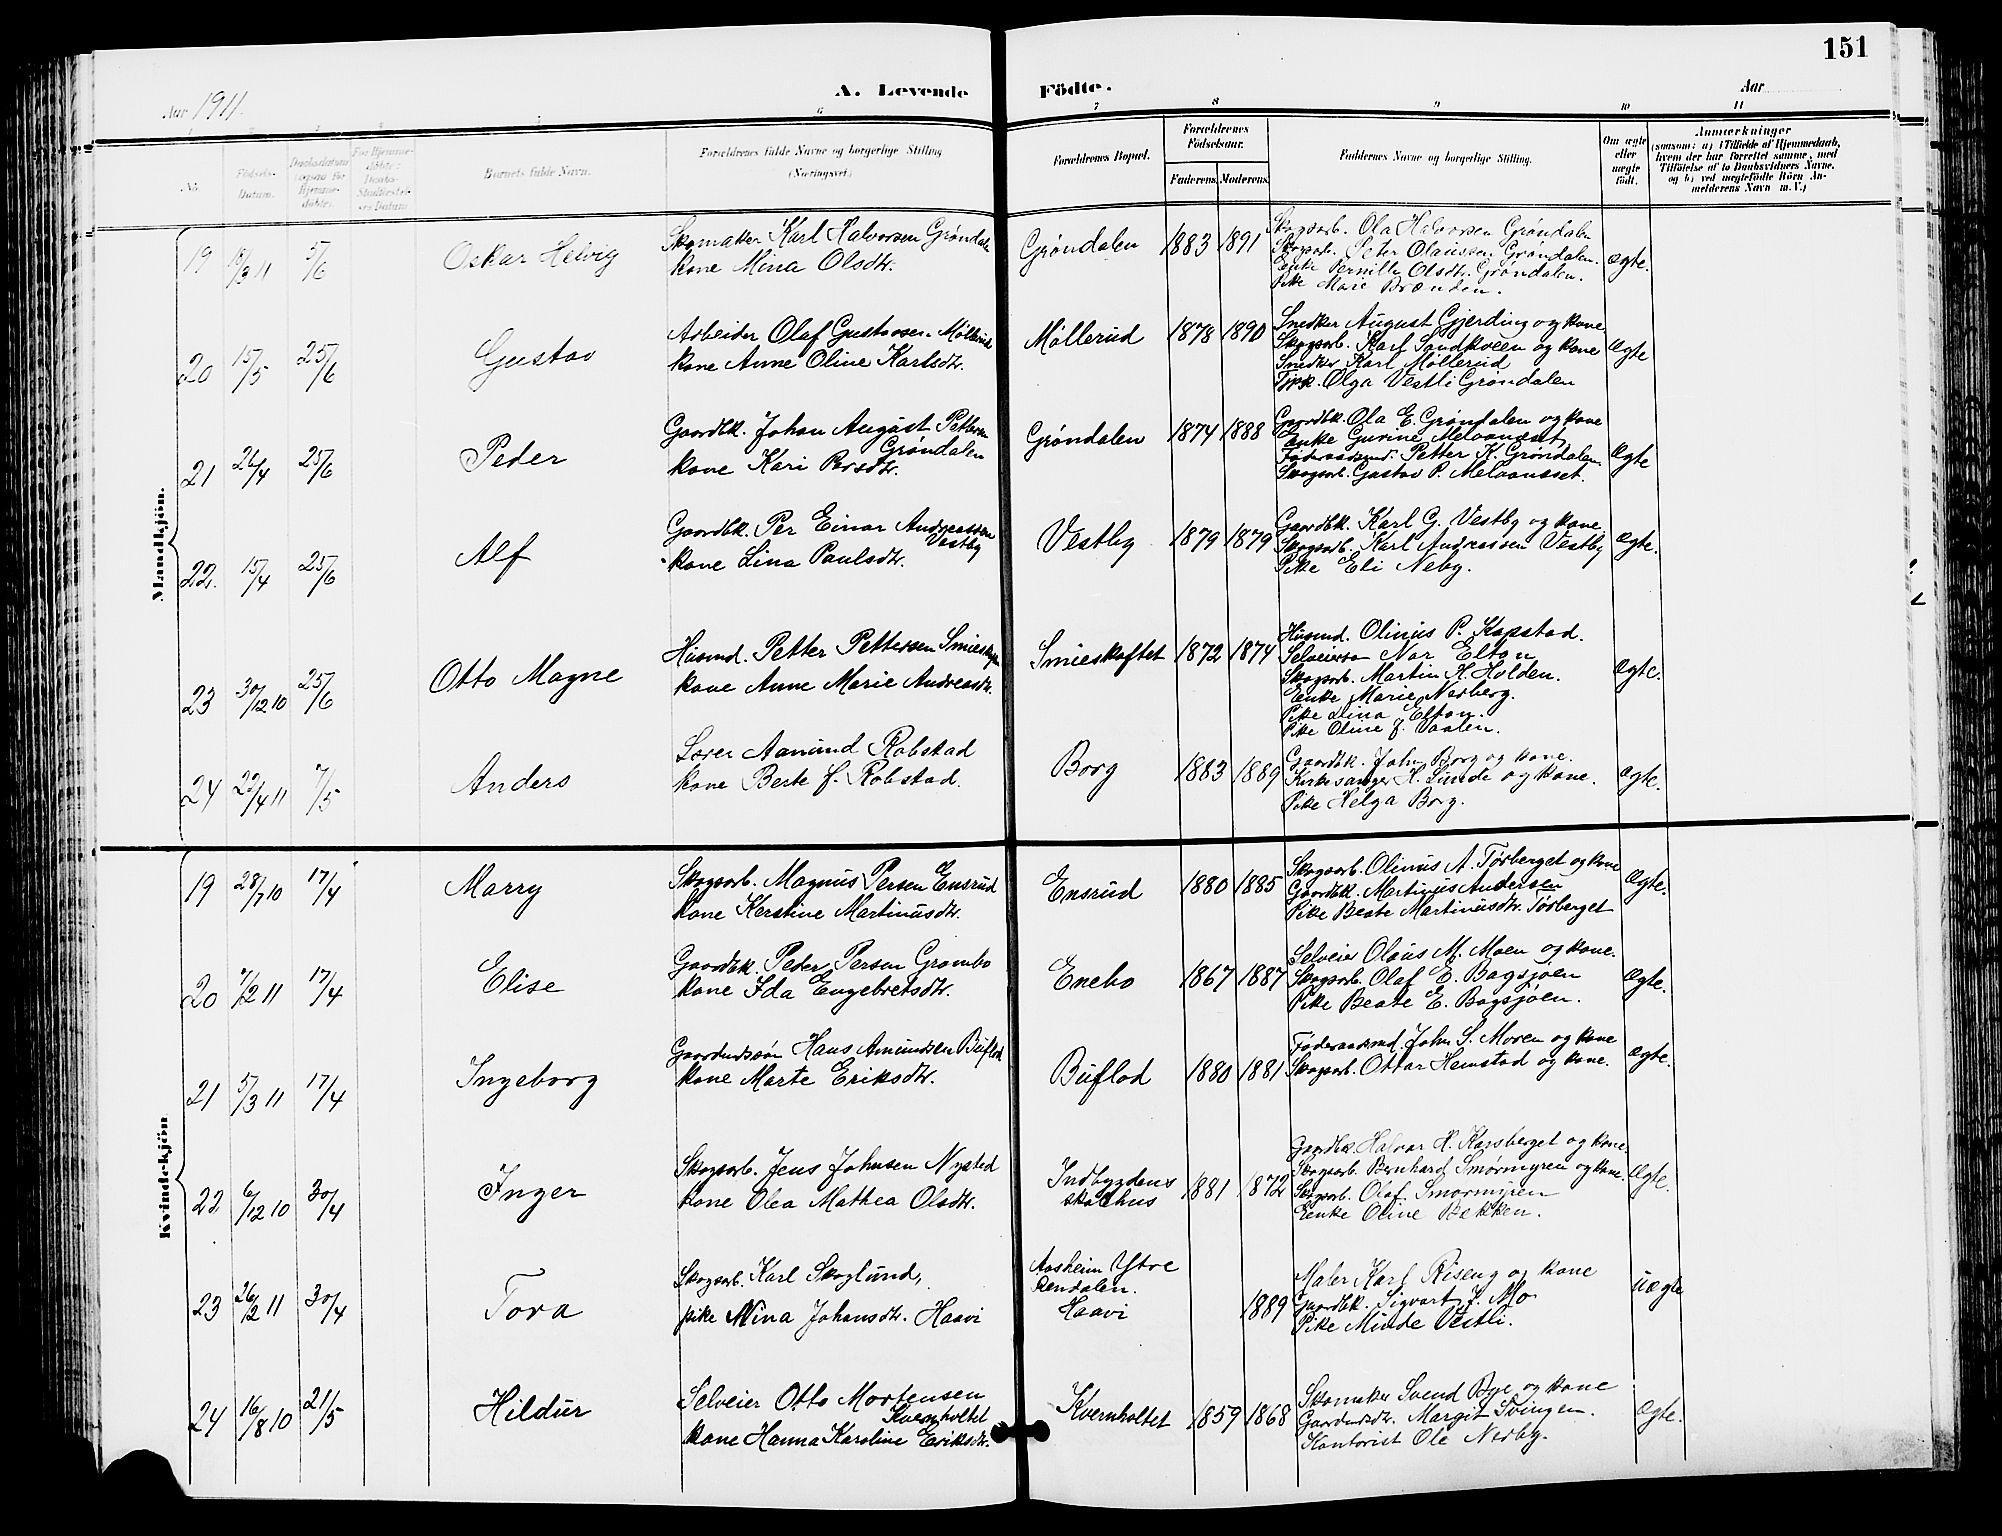 151
Aar 1911.
A. Levende Födte.
Aar
6 7 8 9 10 11
No.
Födsels-Datum.
Daabsdatum
Barnets fulde Navn.
Forældrenes fulde Navne og borgerlige Stilling
(Næringsvei)
Forældrenes Bopæl.
Forældrenes Födselsaar.
Faderens. Moderens.
Faddernes Navne og borgerlige Stilling.
Om ægte eller uægte født.
Anmærkninger
(saasom: a) i Tilfælde af Hjemmedaab,
hvem der har forrettet samme, med
Tilföielse af to Daabsvidners Navne.
og b) ved uægtefödte Börn An-
melderens Navn m. V.)
Mandkjön.
19 3 11 5/6 Oskar Helvig
Skomaker Karl Halvorsen Grøndalen
kone Mina Olsdtr.
Grøndalen 1883 1891
Skogsarb. Ola Halvorsen Grøndalen
Skogsarb. Peter Olaussen Grøndalen.
Enke Pernille Olsdtr. Grøndalen.
Pike Marie Brænden.
ægte.
20 15/5 25/6 Gustav
Arbeider Olaf Gustavsen Møllerud
kone Anne Oline Karlsdtr.
Møllerud 1878 1890
Snedker August Gjerding og kone
Skogsarb. Karl Sandkveen og kone
Snedker Karl Møllerud
Olga Vestli Grøndalen
ægte
21 26/4 25/6 Peder
Gaardbk. Johan August Pettersen
Grøndalen
kone Kari Persdtr.
Grøndalen 1874 1888
Gaardbk. Ola E. Grøndalen og kone
Enke Gurine Melaansset
Føderaadsmd. Petter K. Grøndalen
Skogsarb. Gustav P. Melaansset.
ægte
22. 15/4 25/6 Alf
Gaardbk. Per Einar Andreassen
Vestby
kone Lina Paulsdtr.
Vestby 1879 1879
Gaardbk. Karl G. Vestby og kone
Skogsarb. Karl Andreassen Vestby
Pike Eli Neby.
ægte.
23 30/12 10 25/6 Otto Magne
Husmd. Petter Pettersen Smieskaftet
kone Anne Marie Andreasdtr.
Smieskaftet 1872 1874
Husmd. Olinus P. Kopstad.
Selveier Elton
Skogsarb. Martin H. Holden.
Enke Marie Nerberg.
Pike Lina Elton.
Pike Oline f. Vaalen.
ægte.
24 22/4 11 7/5 Anders
Lærer Aamund Robstad
kone Berte f. Robstad.
Borg 1883 1889
Gaardbk. John Borg og kone.
Kirkesanger H. Lunde og kone.
Pike Helga Borg.
ægte.
Kvindekjön
19 28/7 10 17/4 Marry
Skogsarb. Magnus Persen Ensrud
kone Kerstine Martinusdtr.
Ensrud 1880 1885
Skogsarb. Olinus A. Tørberget og kone
Gaardbk. Martinus Andersen
Pike Beate Martinusdtr. Tørberget
ægte.
20 7/12 11 17/4 Elise
Gaardbk. Peder Persen Grambo
kone Ida Engebretsdtr.
Enebo 1867 1887
Selveier Olaus M. Moen og kone.
Skogsarb. Olaf E. Bagsjøen
Pike Beate E. Bagsjøen.
ægte.
21 5/3 11 17/4 Ingeborg
Gaardmdssøn Hans Amundsen Buflod
kone Marte Eriksdtr.
Buflod 1880 1881
Føderaadsmd. John S. Moren og kone
Skogsarb. Ottar Hemstad og kone.
ægte.
22 6/12 10 30/4 Inger
Skogsarb. Jens Johnsen Nysted
kone Olea Mathea Olsdtr.
Indbygdens skolehus 1881 1872
Gaardbk Halvar H. Korsberget og kone.
Skogsarb. Bernhard Smørmyren og kone.
Skogsarb. Olaf Smørmyren
Enke Oline Bækken.
ægte.
23 26/2 11 30/4 Tora
Skogsarb. Karl Skoglund,
pike Nina Johansdtr. Haavi
Aasheim Ytre
Rendalen.
Haavi 1889
Maler Karl Riseng og kone
Gaardbk. Sigvart J. Mo
Pike Minde Vestli.
uægte
24 16/8 10 21/5 Hildur
Selveier Otto Mortensen
Kvernholtet
kone Hanna Karoline Eriksdtr.
Kvernholtet 1859 1868
Skomaker Svend Bye og kone
Gaardmdsdtr. Margit Svingen.
Kontorist Ole Nerby.
ægte.